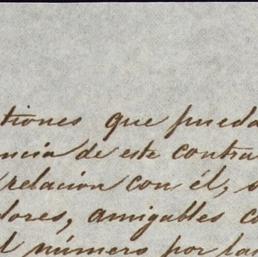 tiones que pueda
ncia de este contra
relacion con él, s
dores, amigables co
l número por la